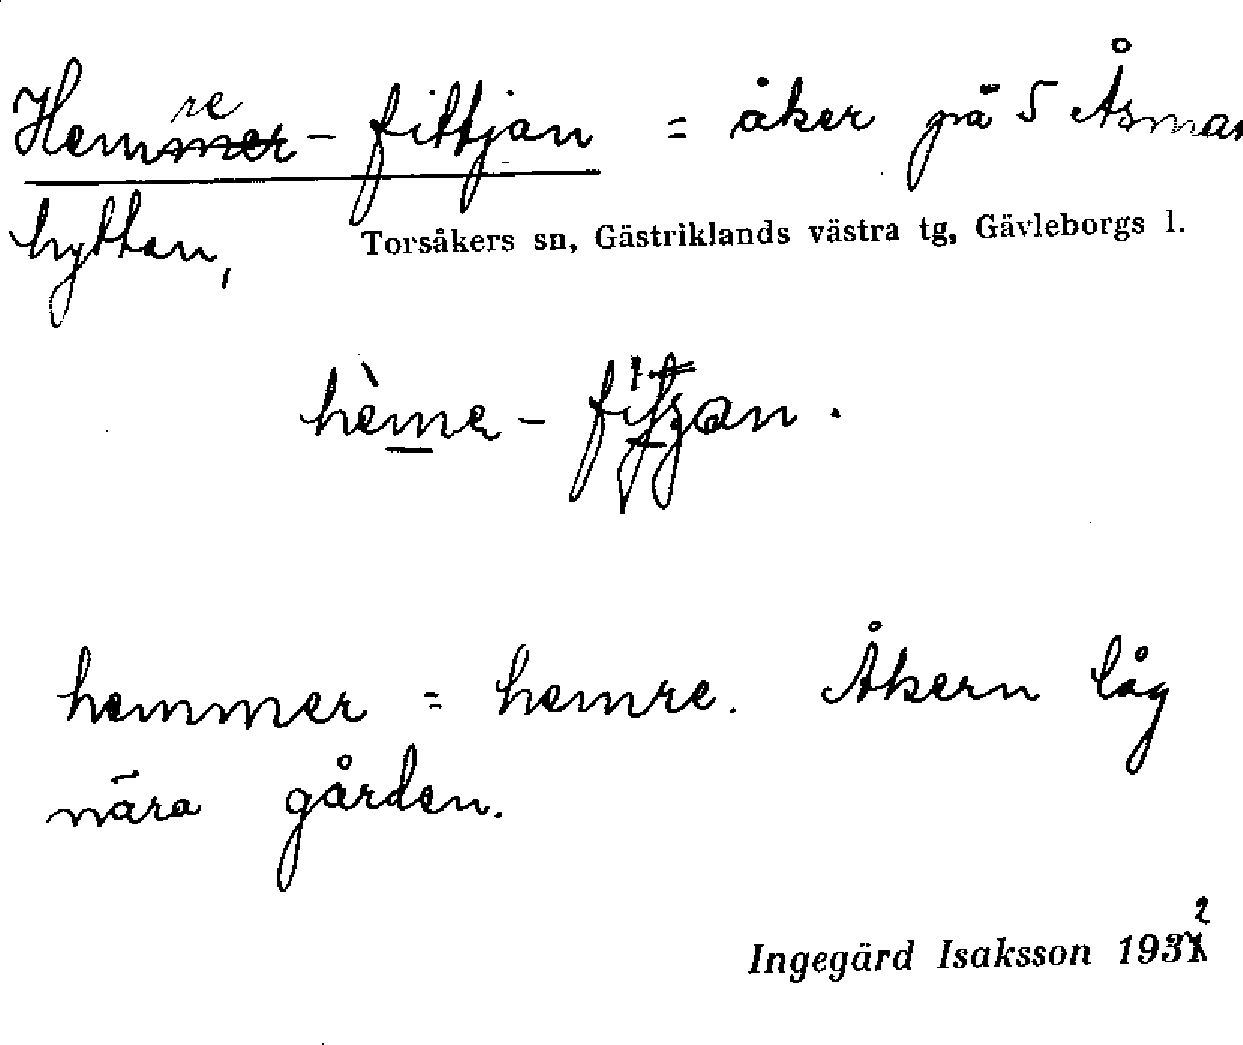 Hemre-fittjan = åker på 5 Åsmas
hyttan, Torsåkers sn, Gästriklands västra tg, Gävleborgs l.
hemmer = hemre. Åkern låg
nära gården.
Ingegärd Isaksson 1932